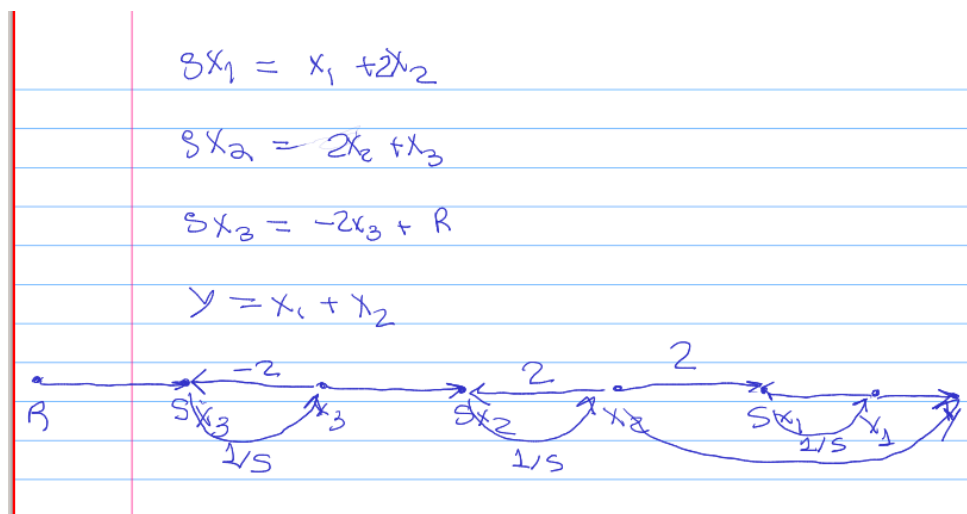 sx₁ = x₁ + 2x₂
sx₂ = 2x₂ + x₃
sx₃ = -2x₃ + R
y = x₁ + x₂
-2 2 2
R sx₃ x₃ sx₂ x₂ sx₁ x₁ y
1/s 1/s 1/s